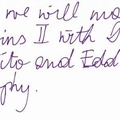 we will mo
ins II with G
ito and Edd
phy.